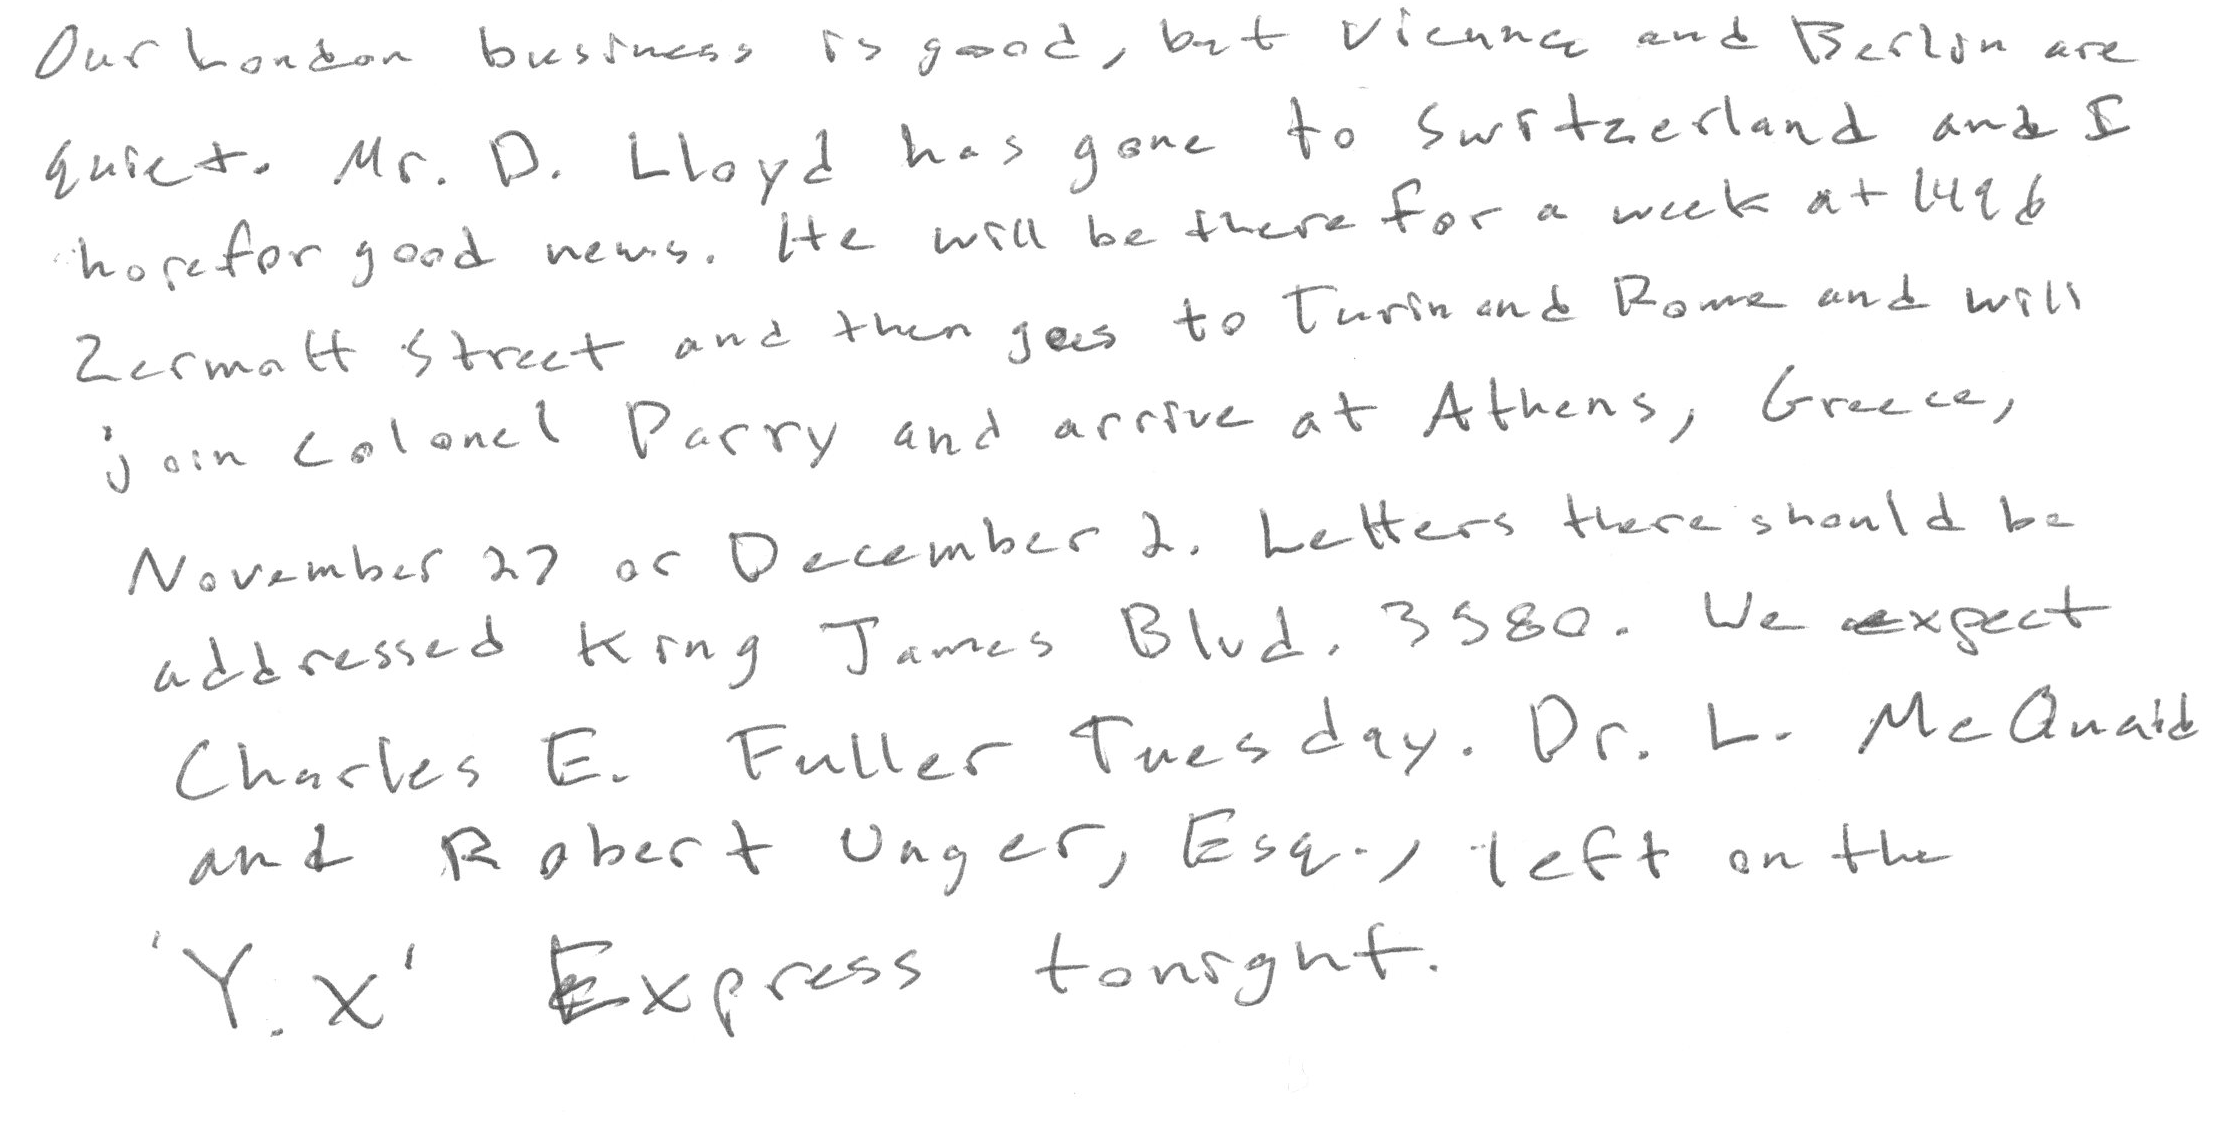 Our London business is good, but Vienna and Berlin are
quiet. Mr. D. Lloyd has gone to Switzerland and I
hope for good news. He will be there for a week at 1496
Zermatt Street and then goes to Turin and Rome and will
join Colonel Parry and arrive at Athens, Greece,
November 27 or December 2. Letters there should be
addressed King James Blvd. 3580. We expect
Charles E. Fuller Tuesday. Dr. L. McQuaid
and Robert Unger, Esq., left on the
'Y.X' Express tonight.